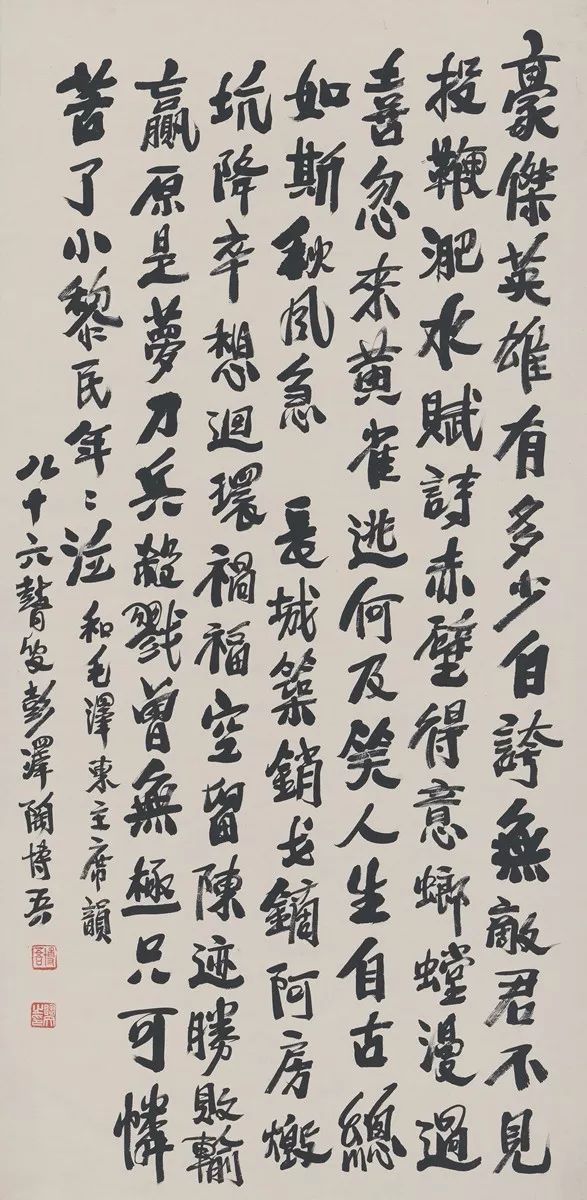 豪傑英雄有多少自誇無敵君不見
投鞭淝水賦詩赤壁得意螂螳漫過
喜忽來黃雀逃何及笑人生自古總
如斯秋風急 長城築銷戈鏑阿房燬
坑降卒想迴環禍福空留陳迹勝敗輸
贏原是夢刀兵殺戮曾無極只可憐
苦了小黎民年〻泣 和毛澤東主席韻
八十六瞽叟彭澤陶博吾
博吾